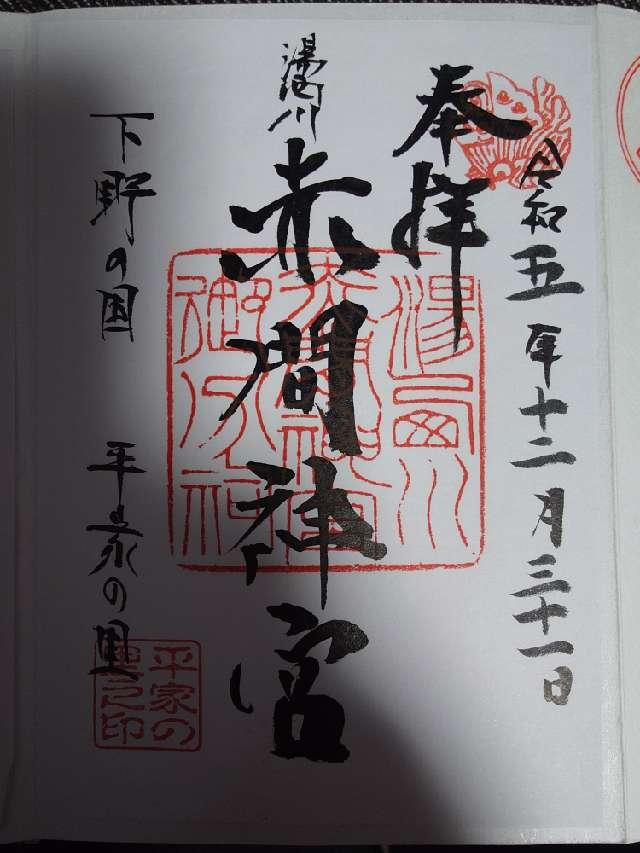 奉拝
令和五年十二月三十一日
湯西川
赤間神宮
湯西川
赤間神宮
御分祠
下野の国 平家の里
平家の
里之印